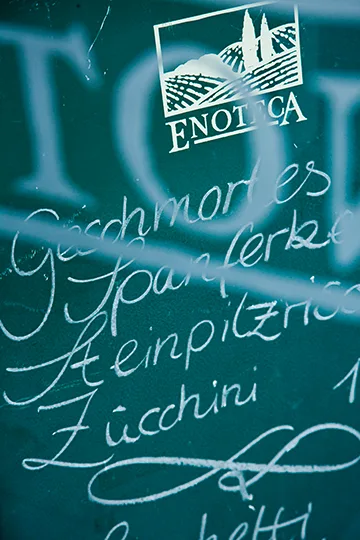 TO
ENOTECA
Geschmortes
Spanferke
Steinpilzriso
Zucchini 1